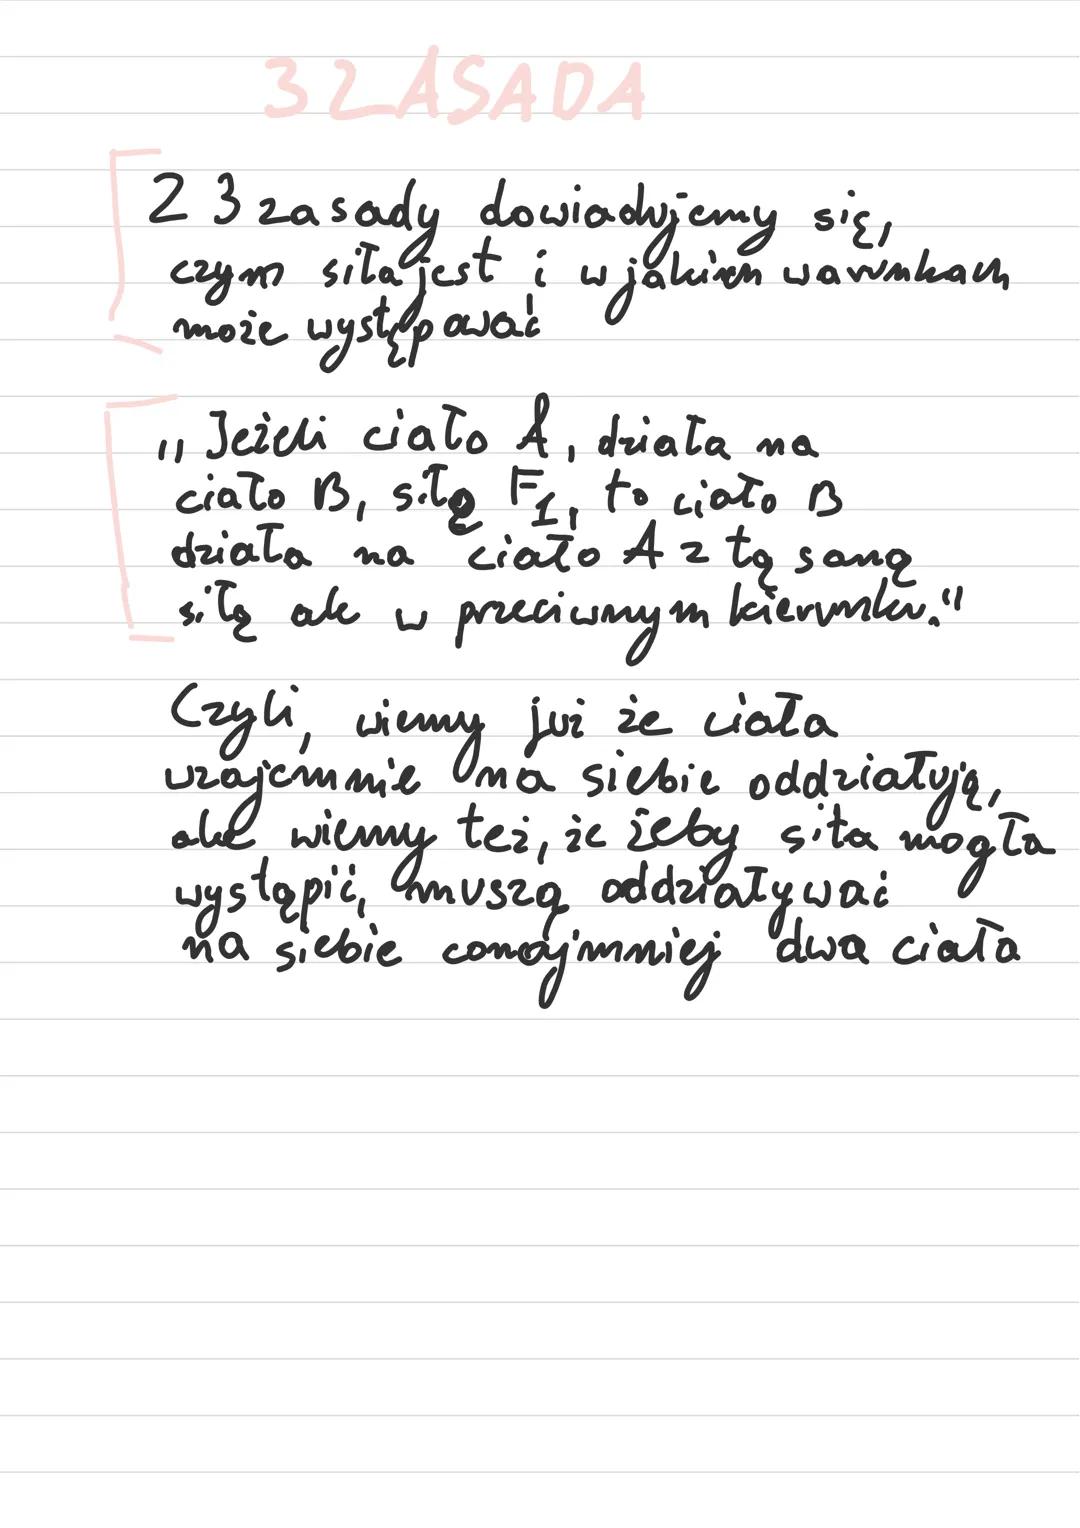 3 ZASADA
Z 3 zasady dowiadujemy się,
czym siła jest i w jakich warunkach
może występować
„Jeżeli ciało A, działa na
ciało B, siłą F1, to ciało B
działa na ciało A z tą samą
siłą ale w przeciwnym kierunku."
Czyli, wiemy już że ciała
wzajemnie na siebie oddziałują,
ale wiemy też, że żeby siła mogła
wystąpić, muszą oddziaływać
na siebie conajmniej dwa ciała